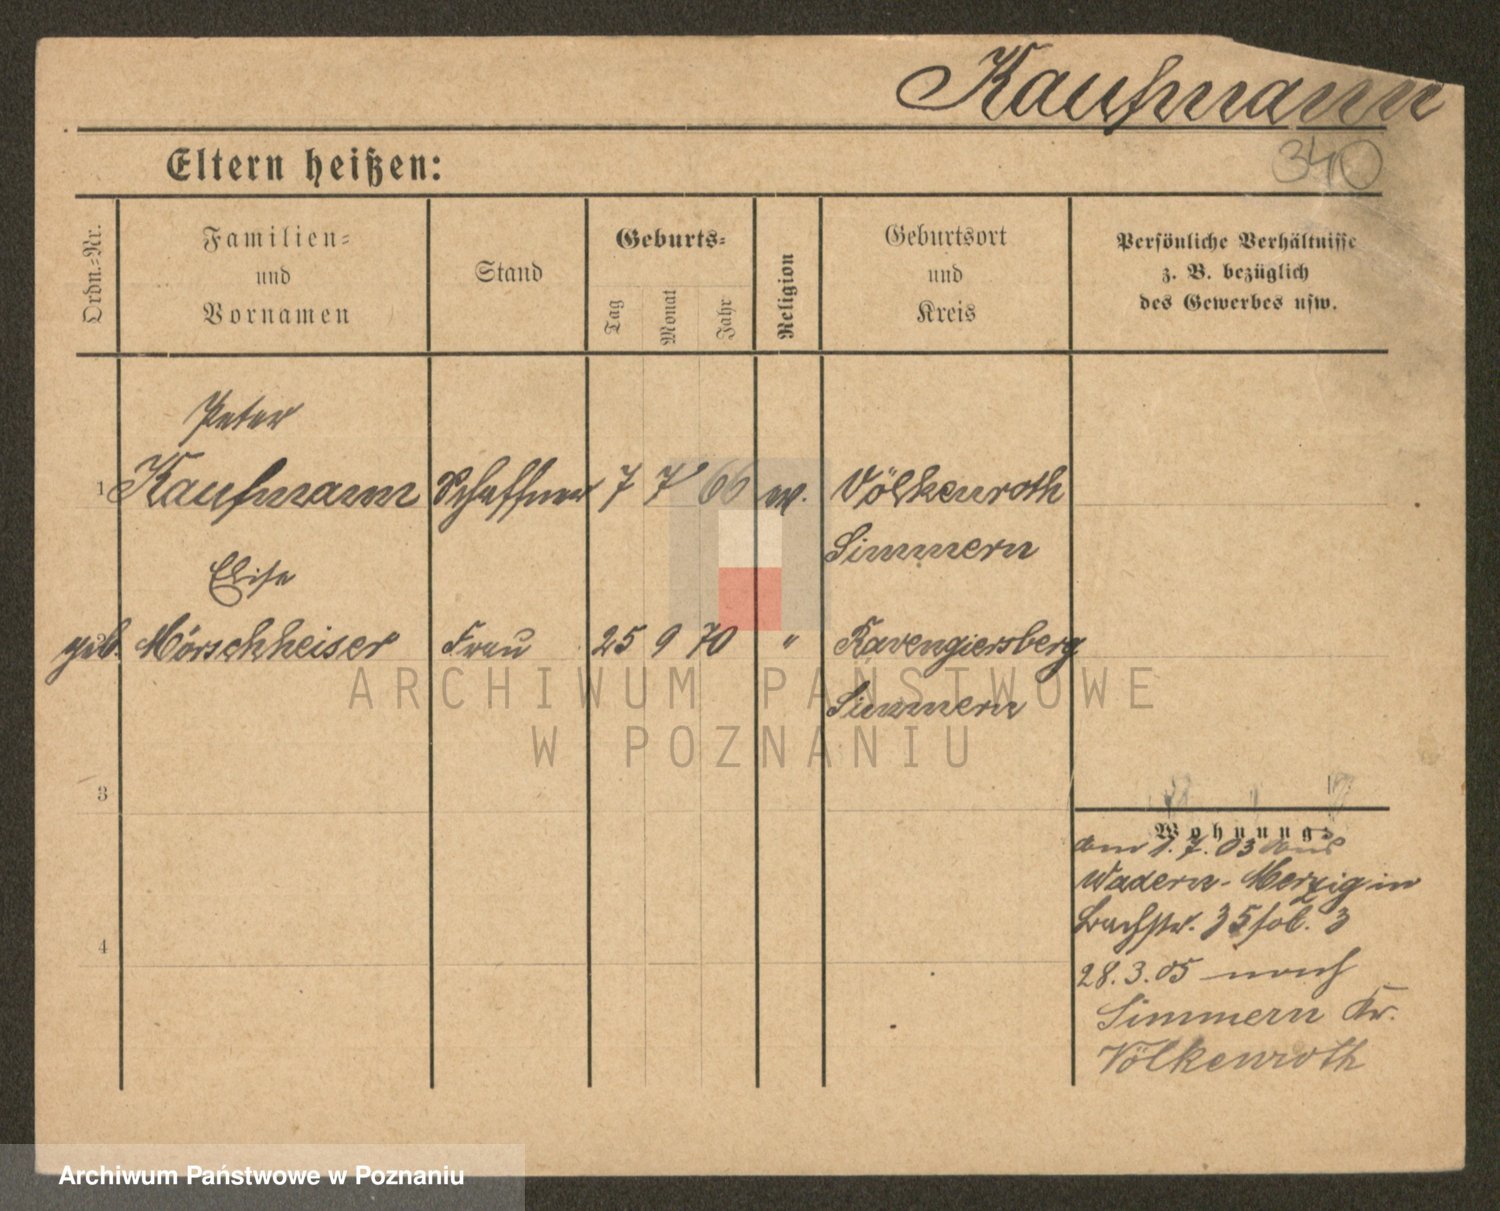 Kaufmann
340
Eltern heißen:
Ordn.-Nr.
Familien-
und
Vornamen
Stand
Geburts-
Tag
Monat
Jahr
Religion
Geburtsort
und
Kreis
Persönliche Verhältnisse
z. B. bezüglich
des Gewerbes usw.
Peter
1 Kaufmann Schaffner 7 7 66 ev. Völkenroth
Simmern
Elise
geb. Mörschheiser Frau 25 9 70 " Ravengiersberg
Simmern
3
4
Wohnung:
am 1.7.03 aus
Wadern-Merzig in
Bachstr. 35
28.3.05 nach
Simmern Kr.
Völkenroth
ARCHIWUM PAŃSTWOWE
W POZNANIU
Archiwum Państwowe w Poznaniu